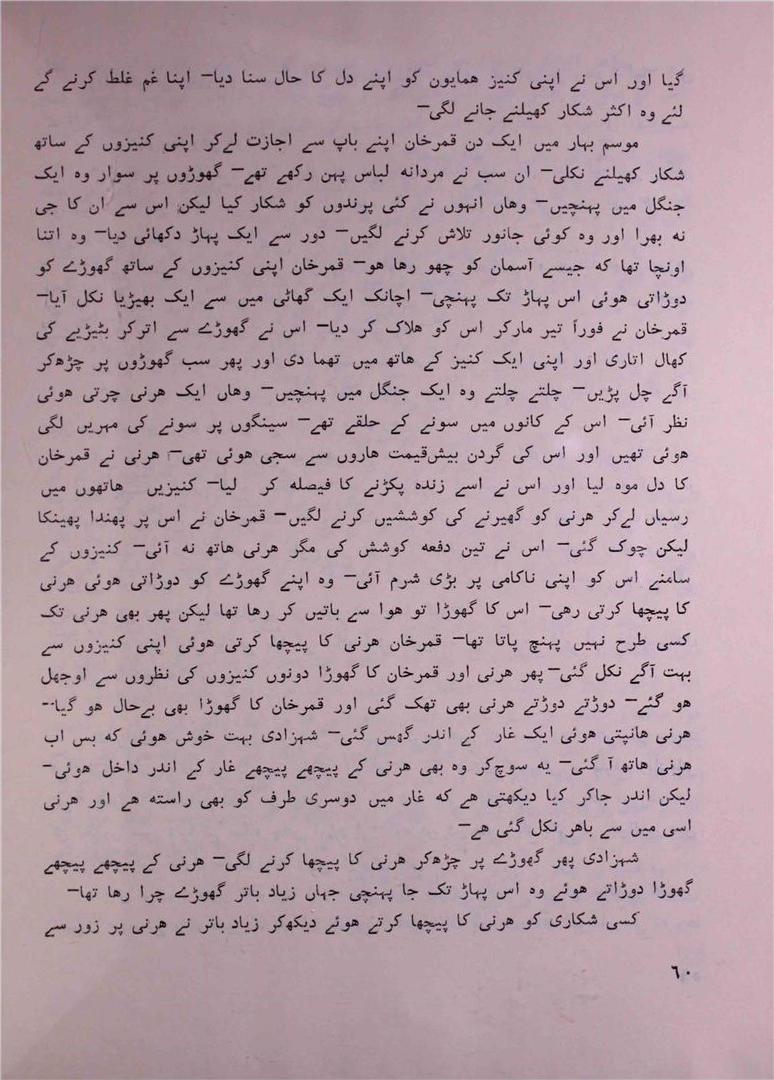 گیا اور اس نے اپنی کنیز همایون کو اپنے دل کا حال سنا دیا— اپنا غم غلط کرنے گے
لئے وه اکثر شکار کھیلنے جانے لگی—
موسم بہار میں ایک دن قمرخان اپنے باپ سے اجازت لےکر اپنی کنیزوں کے ساتھ
شکار کھیلنے نکلی— ان سب نے مردانه لباس پہن رکھے تھے— گھوڑوں پر سوار وه ایک
جنگل میں پہنچیں— وهاں انہوں نے کئی پرندوں کو شکار کیا لیکن اس سے ان کا جی
نه بھرا اور وه کوئی جانور تلاش کرنے لگیں— دور سے ایک پہاڑ دکھائی دیا— وه اتنا
اونچا تھا که جیسے آسمان کو چھو رها هو— قمرخان اپنی کنیزوں کے ساتھ گھوڑے کو
دوڑاتی هوئی اس پہاڑ تک پہنچی— اچانک ایک گھاٹی میں سے ایک بھیڑیا نکل آیا—
قمرخان نے فوراً تیر مارکر اس کو هلاک کر دیا— اس نے گھوڑے سے اترکر بٹیڑیے کی
کھال اتاری اور اپنی ایک کنیز کے هاتھ میں تھما دی اور پھر سب گھوڑوں پر چڑھکر
آگے چل پڑیں— چلتے چلتے وه ایک جنگل میں پہنچیں— وهاں ایک هرنی چرتی هوئی
نظر آئی— اس کے کانوں میں سونے کے حلقے تھے— سینگوں پر سونے کی مہریں لگی
هوئی تھیں اور اس کی گردن بیش‌قیمت هاروں سے سجی هوئی تھی— هرنی نے قمرخان
کا دل موه لیا اور اس نے اسے زنده پکڑنے کا فیصله کر لیا— کنیزیں هاتھوں میں
رسیاں لےکر هرنی کو گھیرنے کی کوششیں کرنے لگیں— قمرخان نے اس پر پھندا پھینکا
لیکن چوک گئی— اس نے تین دفعه کوشش کی مگر هرنی هاتھ نه آئی— کنیزوں کے
سامنے اس کو اپنی ناکامی پر بڑی شرم آئی— وه اپنے گھوڑے کو دوڑاتی هوئی هرنی
کا پیچھا کرتی رهی— اس کا گھوڑا تو هوا سے باتیں کر رها تھا لیکن پھر بھی هرنی تک
کسی طرح نہیں پہنچ پاتا تھا— قمرخان هرنی کا پیچھا کرتی هوئی اپنی کنیزوں سے
بہت آگے نکل گئی— پھر هرنی اور قمرخان کا گھوڑا دونوں کنیزوں کی نظروں سے اوجھل
هو گئے— دوڑتے دوڑتے هرنی بھی تھک گئی اور قمرخان کا گھوڑا بھی بےحال هو گیا—
هرنی هانپتی هوئی ایک غار کے اندر گھس گئی— شہزادی بہت خوش هوئی که بس اب
هرنی هاتھ آ گئی— یه سوچ‌کر وه بھی هرنی کے پیچھے پیچھے غار کے اندر داخل هوئی—
لیکن اندر جاکر کیا دیکھتی هے که غار میں دوسری طرف کو بھی راسته هے اور هرنی
اسی میں سے باهر نکل گئی هے—
شہزادی پھر گھوڑے پر چڑھکر هرنی کا پیچھا کرنے لگی— هرنی کے پیچھے پیچھے
گھوڑا دوڑاتے هوئے وه اس پہاڑ تک جا پہنچی جہاں زیاد باتر گھوڑے چرا رها تھا—
کسی شکاری کو هرنی کا پیچھا کرتے هوئے دیکھکر زیاد باتر نے هرنی پر زور سے
٦٠